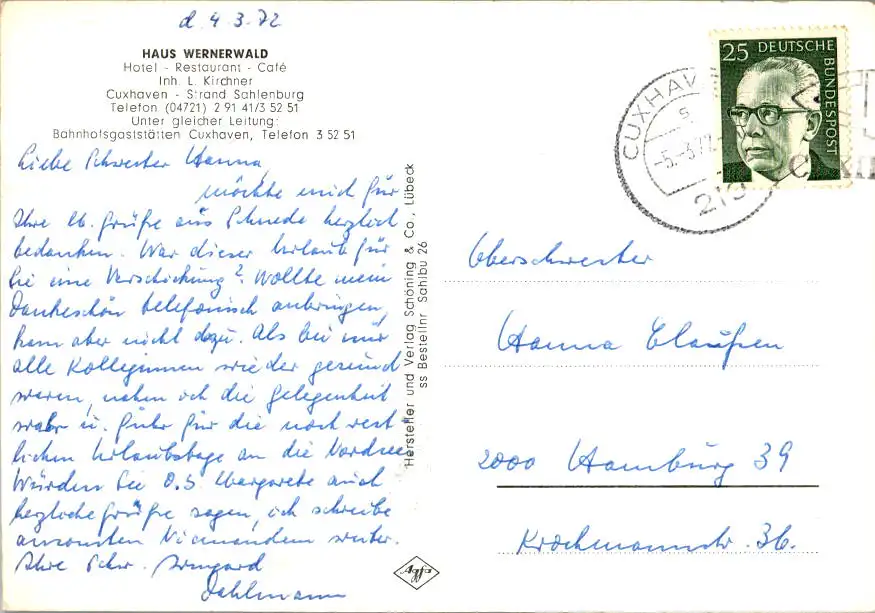 d. 4.3.72
HAUS WERNERWALD
Hotel - Restaurant - Café
Inh. L. Kirchner
Cuxhaven - Strand Sahlenburg
Telefon (04721) 2 91 41/3 52 51
Unter gleicher Leitung:
Bahnhofsgaststätten Cuxhaven, Telefon 3 52 51
Liebe Schwester Hanna,
möchte mich für
Ihre lb. Grüße aus Schnede herzlich
bedanken. War dieser Urlaub für
Sie eine Verschickung? Wollte mein
Dankeschön telefonisch anbringen,
kam aber nicht dazu. Als bei mir
alle Kolleginnen wieder gesund
waren, nahm ich die Gelegenheit
wahr u. fuhr für die noch rest
lichen Urlaubstage an die Nordsee.
Würden Sie O.S. Margarete auch
herzliche Grüße sagen, ich schreibe
ansonsten Niemandem weiter.
Ihre Schw. Irmgard
Dahlmann
Hersteller und Verlag Schöning & Co., Lübeck
ss Bestellnr Sahlbu 26
Agfa
25 DEUTSCHE
BUNDESPOST
CUXHAV
-5.-3.72
219
Oberschwester
Hanna Claußen
2000 Hamburg 39
Krochmannstr. 36.